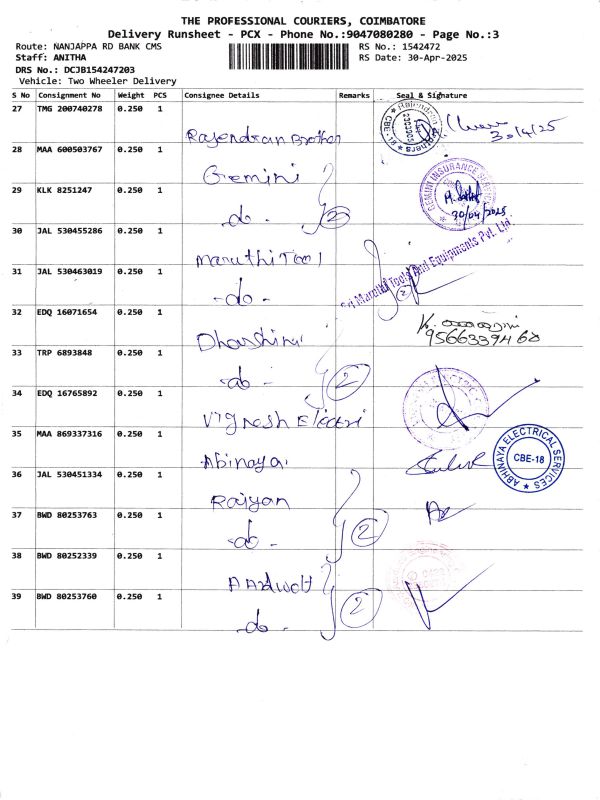 THE PROFESSIONAL COURIERS, COIMBATORE
Delivery Runsheet - PCX - Phone No.:9047080280 - Page No.:3
Route: NANJAPPA RD BANK CMS
RS No.: 1542472
Staff: ANITHA
RS Date: 30-Apr-2025
DRS No.: DCJB154247203
Vehicle: Two Wheeler Delivery
S No Consignment No Weight PCS Consignee Details Remarks Seal & Signature
27 TMG 200740278 0.250 1 Rajendran Brother 30/4/25
28 MAA 600503767 0.250 1 Gemini
GEMINI INSURANCE
29 KLK 8251247 0.250 1 -do- 2 30/04/2025
30 JAL 530455286 0.250 1 Maruthi Tool
Sri Maruthi Tools And Equipments Pvt. Ltd.
31 JAL 530463019 0.250 1 -do- 2
32 EDQ 16071654 0.250 1 Dharshini
9566339460
33 TRP 6893848 0.250 1 -do- 2
34 EDQ 16765892 0.250 1 Vignesh Electri
35 MAA 869337316 0.250 1 Abinaya
ABHINAYA ELECTRICAL SERVICES
CBE-18
36 JAL 530451334 0.250 1 Raiyan
37 BWD 80253763 0.250 1 -do- 2
38 BWD 80252339 0.250 1 Aardwolf
39 BWD 80253760 0.250 1 -do- 2